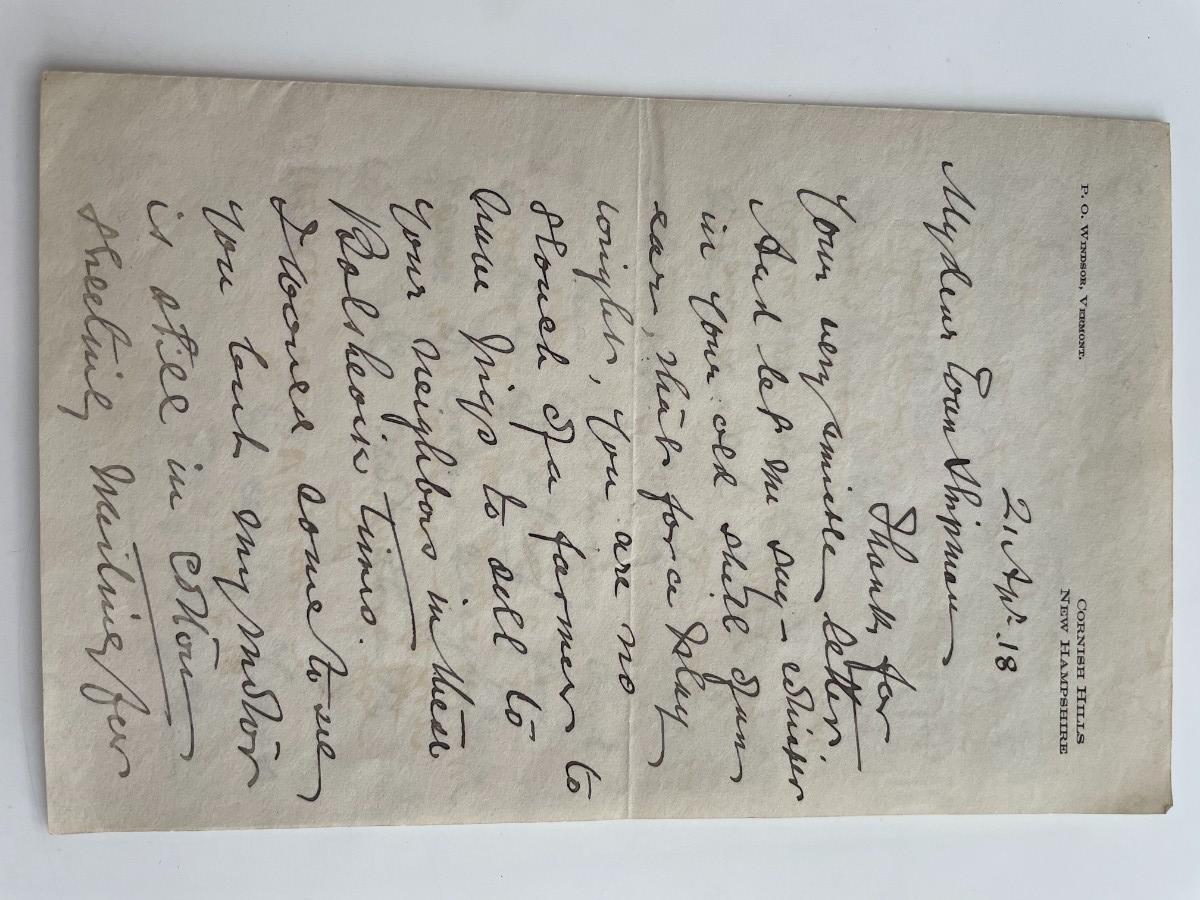 CORNISH HILLS
NEW HAMPSHIRE
P. O. WINDSOR, VERMONT.
21 Apr. 18
My dear Shipman
Thanks for
Your very letter;
And let me say – whisper
in your old
ear, that
you are no
slouch of a farmer to
have pigs to sell to
your neighbors in these
Bolshevik times.
I would come to see
you but my motor
is still in
sheeting waiting for